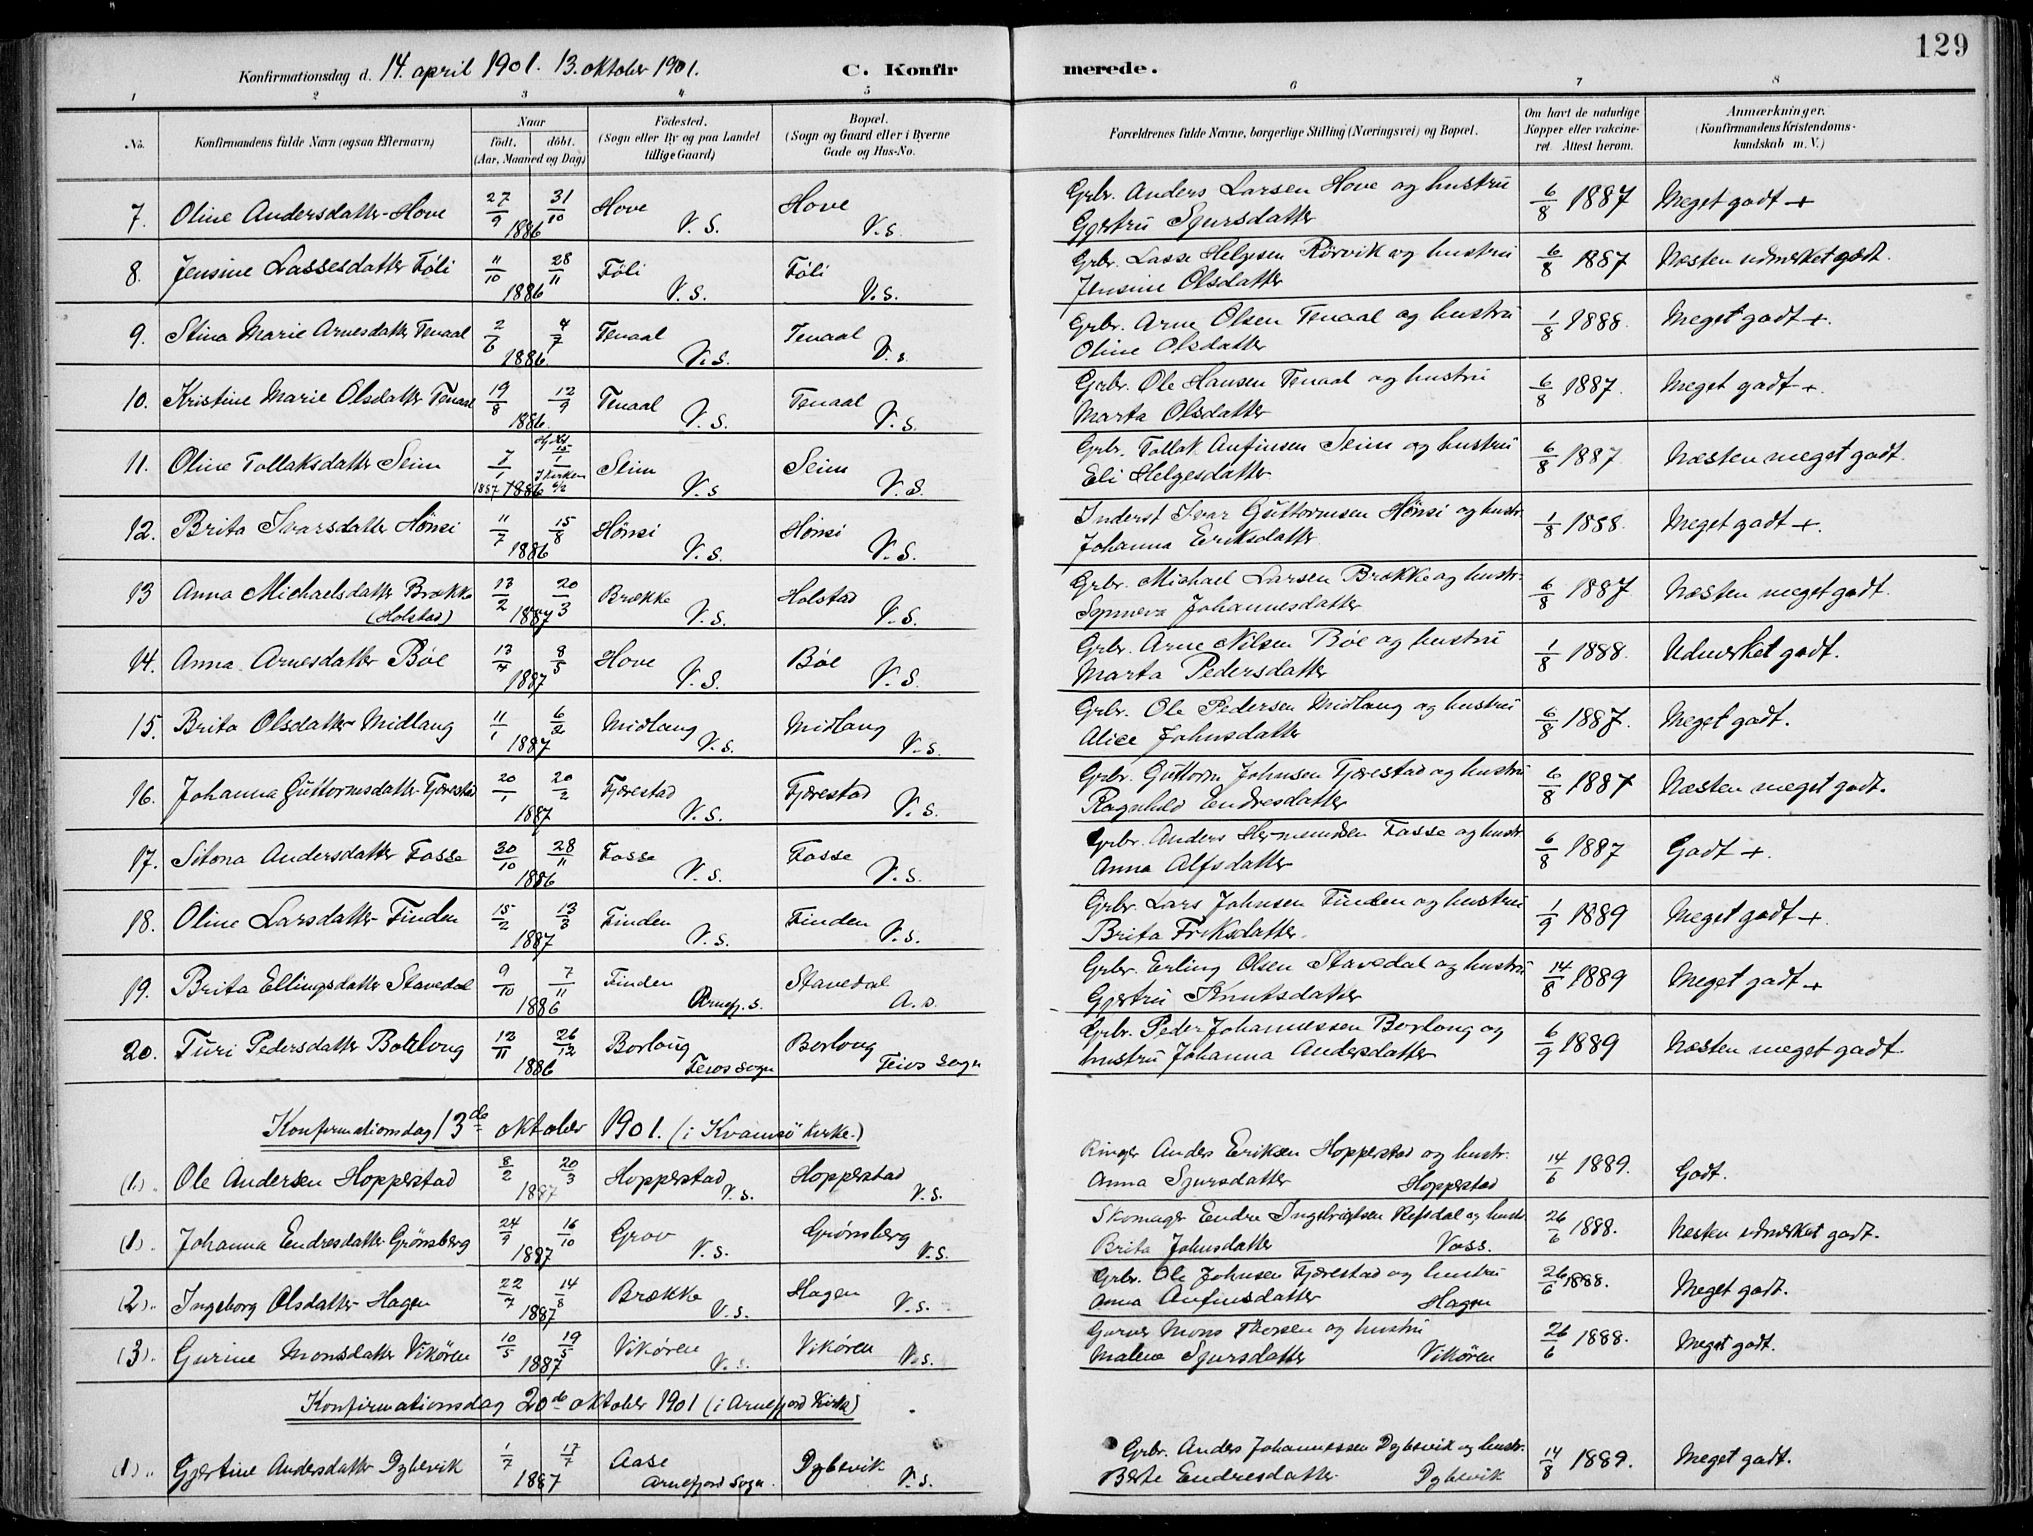 129
Konfirmationsdag d. 14. april 1901. 13. oktober 1901. C. Konfirmerede.
1 2 3 4 5 6 7 8
No. Konfirmandens fulde Navn (ogsaa Efternavn) Naar født. døbt. (Aar, Maaned og Dag) Fødested. (Sogn eller By og paa Landet tillige Gaard) Bopæl. (Sogn og Gaard eller i Byerne Gade og Hus-No. Forældrenes fulde Navne, borgerlige Stilling (Næringsvei) og Bopæl. Om havt de naturlige Kopper eller vakcineret. Attest herom. Anmærkninger. (Konfirmandens Kristendomskundskab m. V.)
7. Oline Andersdatter Hove 27/9 31/10 1886 Hove V. S. Hove V. s. Grbr. Anders Larsen Hove og hustru
Gjertru Sjursdatter 6/8 1887 Meget godt +
8. Jensine Lassesdatter Føli 11/10 28/11 1886 Føli V. s. Føli V. s. Grbr. Lasse Helgesen Rørvik og hustru
Jensine Olsdatter 6/8 1887 Næsten udmærket godt.
9. Stina Marie Arnesdatter Tenaal 2/6 4/7 1886 Tenaal V. S. Tenaal V. s. Grbr. Arne Olsen Tenaal og hustru
Oline Olsdatter 1/8 1888. Meget godt +.
10. Kristine Marie Olsdatter Tenaal 19/8 12/9 1886. Tenaal V. S. Tenaal V. s. Grbr. Ole Hansen Tenaal og hustru
Marta Olsdatter 6/8 1887. Meget godt +.
11. Oline Tollaksdatter Seim 7/1 1887 1886 15/1 I kirken 6/2 Seim V. s Seim V. S. Grbr. Tollak Anfinsen Seim og hustru
Eli Helgesdatter 6/8 1887 Næsten meget godt.
12. Brita Ivarsdatter Hönsi 11/7 15/8 1886 Hönsi V. s. Hönsi V. S. Inderst Ivar Guttormsen Hönsi og hustr.
Johanna Eriksdatter 1/8 1888. Meget godt +.
13 Anna Michaelsdatter Brække
(Holstad) 13/2 20/3 1887 Brække V. s. Holstad V. S. Grbr. Michael Larsen Brække og hustr.
Synneva Johannesdatter 6/8 1887 Næsten meget godt.
14. Anna Arnesdatter Böe 13/4 8/5 1887 Hove V. S. Böe V. S. Grbr. Arne Nilsen Böe og hustru
Marta Pedersdatter 1/8 1888. Udmerket godt.
15. Brita Olsdatter Midlang 11/1 6/2 1887 Midlang V. s. Midlang V. s. Grbr. Ole Pedersen Midlang og hustru
Alice Johnsdatter 6/8 1887. Meget godt.
16. Johanna Guttormsdatter Fjærestad 20/1 20/2 1887 Fjærestad V. s. Fjærestad V. s. Grbr. Guttorm Johnsen Fjærestad og hustru
Ragnhild Endresdatter 6/8 1887 Næsten meget godt.
17. Sitona Andersdatter Fosse 30/10 28/11 1886 Fosse V. s. Fosse V. s. Grbr. Anders Hermundsen Fosse og hustr
Anna Alfsdatter 6/8 1887 Godt +.
18. Oline Larsdatter Finden 15/2 13/3 1887 Finden V. s. Finden V. s. Grbr. Lars Johnsen Finden og hustru
Brita Eriksdatter. 1/9 1889 Meget godt +
19. Brita Ellingsdatter Stavedal 9/10 7/11 1886 Finden Arnefj. s. Stavedal A. s. Grbr. Erling Olsen Stavedal og hustru
Gjertru Knutsdatter 14/8 1889 Meget godt +
20. Turi Pedersdatter Borlong 12/11 26/12 1886 Borlong Feios sogn Borlong Feios sogn Grbr. Peder Johannessen Borlong og
hustru Johanna Andersdatter 6/9 1889 Næsten meget godt
Konfirmationsdag 13de oktober 1901. (i Kvamsö Kirke.)
(1.). Ole Andersen Hopperstad 8/2 20/3 1887 Hopperstad V. s. Hopperstad V. s. Ringer Anders Eriksen Hopperstad og hustr.
Anna Sjursdatter Hopperstad 14/6 1889. Godt.
(1). Johanna Endresdatter Grönsberg 24/9 16/10 1887 Grov V. s. Grønsberg V. s. Skomager Endre Ingebrigtsen Refsdal og hustr
Brita Johnsdatter Voss. 26/6 1888. Næsten udmærket godt.
(2). Ingeborg Olsdatter Hagen 22/7 14/8 1887 Brække V. s. Hagen V. s. Grbr. Ole Johnsen Fjærestad og hustru
Anna Anfinsdatter Hagen 26/6 1888. Meget godt.
(3). Gurine Monsdatter Vikören 10/5 19/5 1887 Vikören V. s. Vikören V. s. Garver Mons Thorsen og hustru
Malene Sjursdatter Vikören 26/6 1888. Meget godt.
Konfirmationsdag 20de oktober 1901 (i Arnefjord Kirke)
(1). Gjertine Andersdatter Dybevik 1/7 17/7 1887 Aase Arnefjord sogn. Dybevik V. s. Grbr. Anders Johannessen Dybevik og hustr.
Berte Endresdatter Dybevik 14/8 1889. Meget godt.